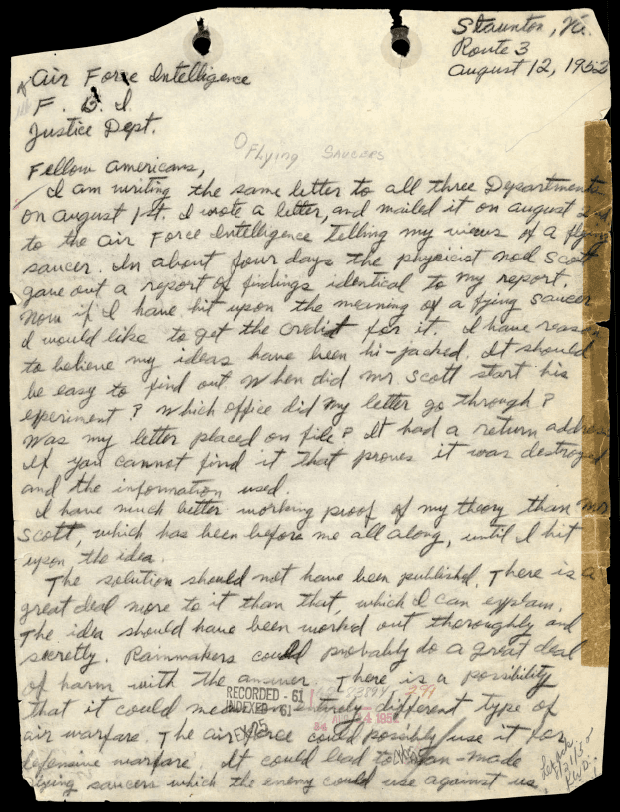 Staunton, Va.
Route 3
August 12, 1952
Air Force Intelligence
F. B. I.
Justice Dept.
Flying Saucers
Fellow Americans,
I am writing the same letter to all three Departments
on August 1st. I wrote a letter, and mailed it on August 2nd
to the Air Force Intelligence telling my views of a flying
saucer. In about four days the physicist Noel Scott
gave out a report of findings identical to my report.
Now if I have hit upon the meaning of a flying saucer
I would like to get the credit for it. I have reason
to believe my ideas have been hi-jacked. It should
be easy to find out. When did Mr. Scott start his
experiment? Which office did my letter go through?
Was my letter placed on file? It had a return address
If you cannot find it that proves it was destroyed
and the information used.
I have much better working proof of my theory than Mr.
Scott, which has been before me all along, until I hit
upon the idea.
The solution should not have been published. There is a
great deal more to it than that, which I can explain.
The idea should have been worked out thoroughly and
secretly. Rainmakers could probably do a great deal
of harm with the answer. There is a possibility
that it could mean an entirely different type of
air warfare. The air force could possibly use it for
defensive warfare. It could lead to man-made
flying saucers which the enemy could use against us.
RECORDED - 61
INDEXED - 61
EX-25